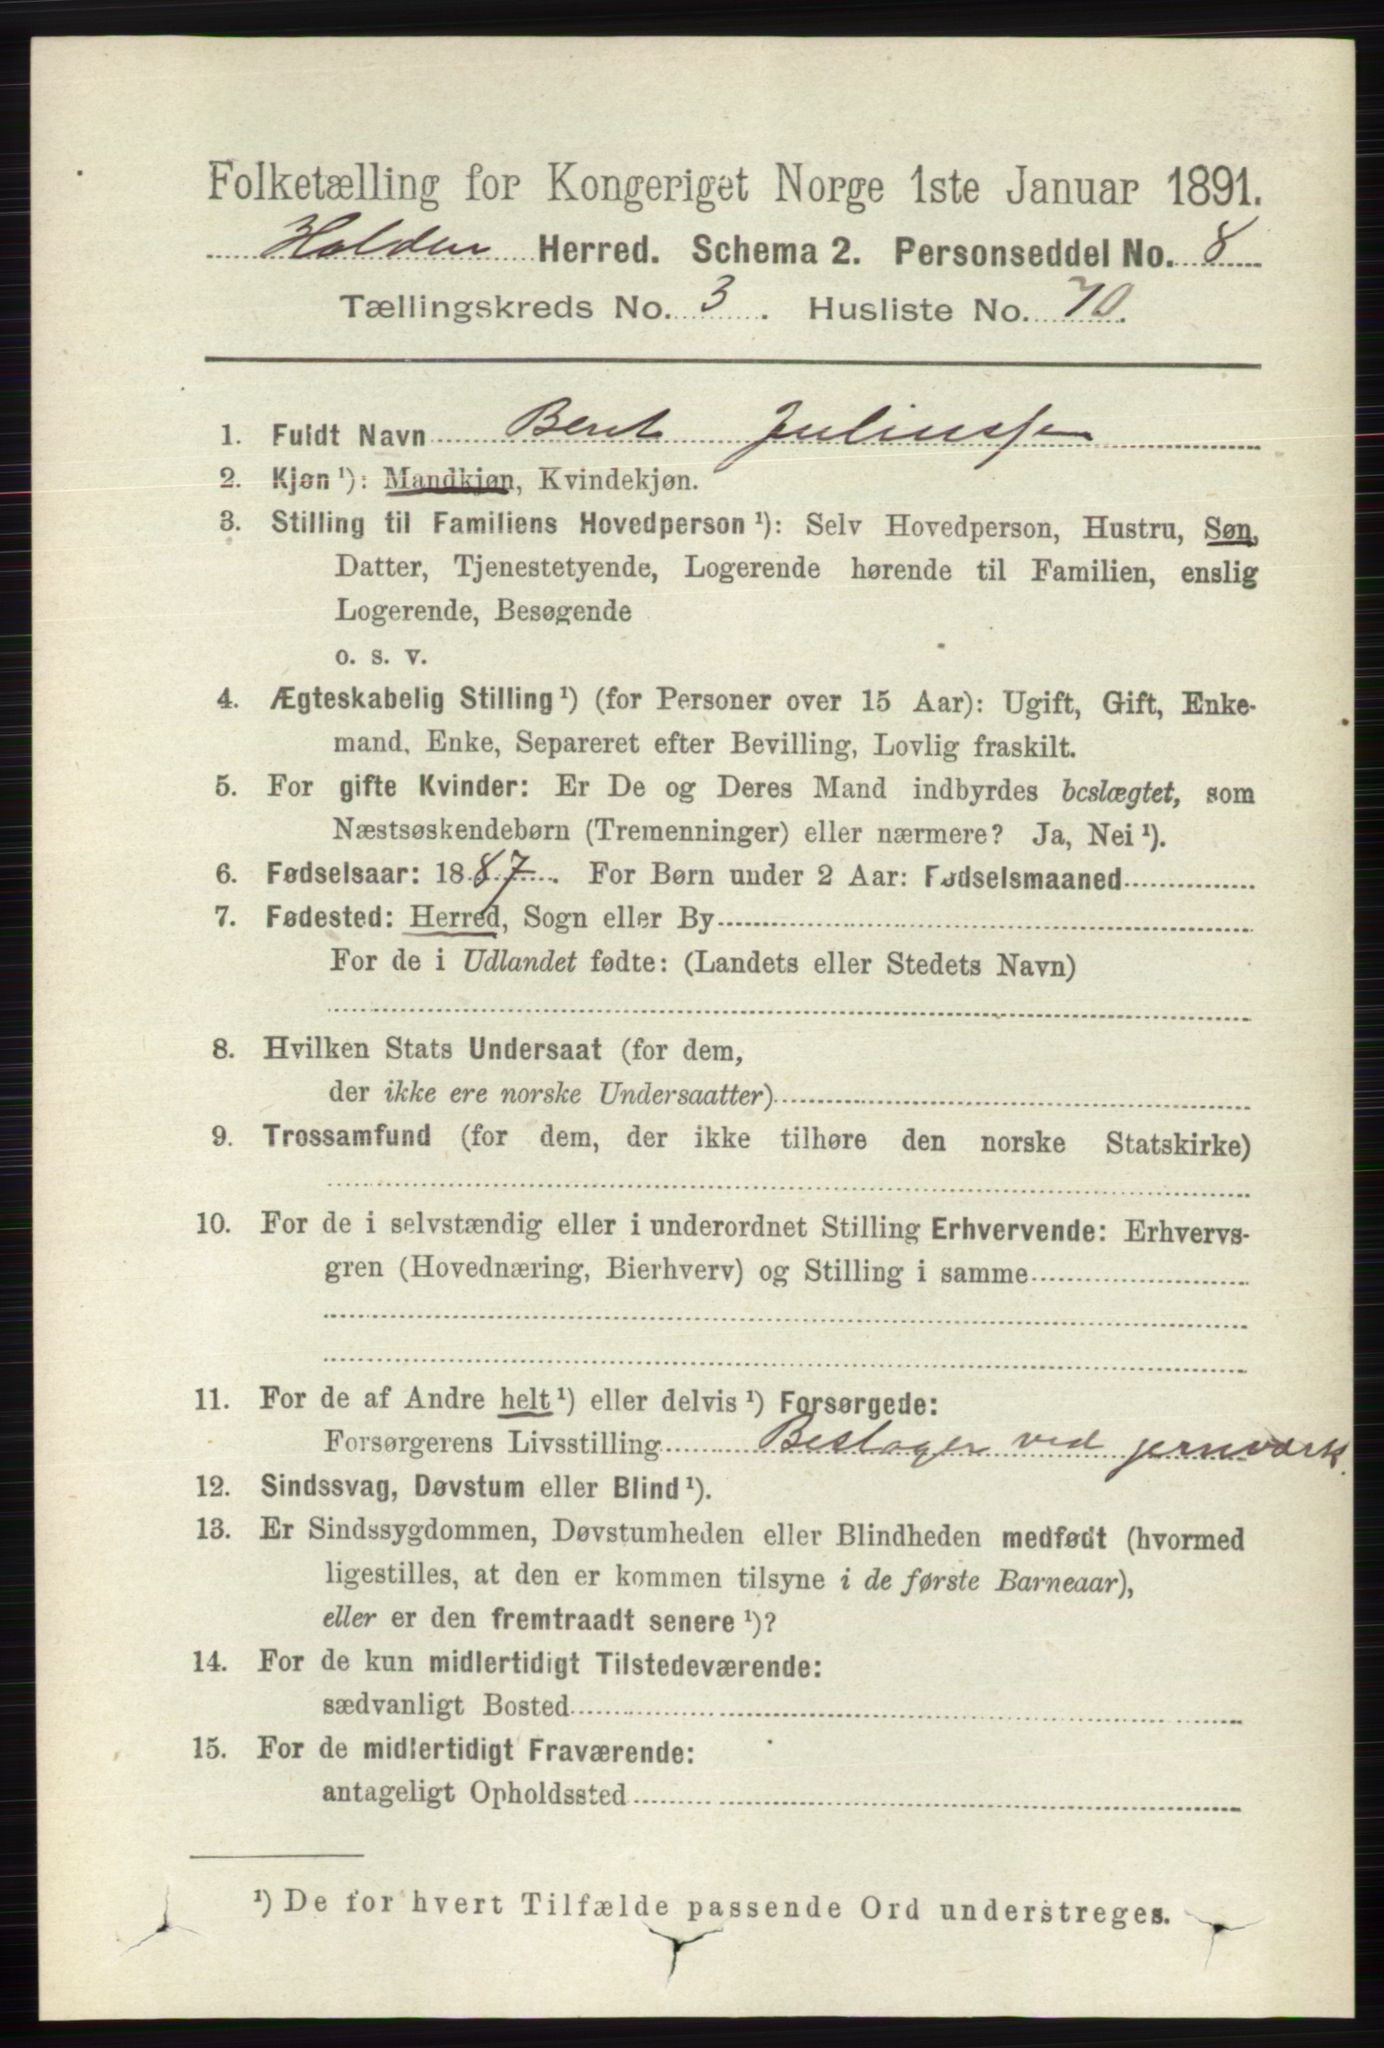 Folketælling for Kongeriget Norge 1ste Januar 1891.
Holden Herred. Schema 2. Personseddel No. 8
Tællingskreds No. 3. Husliste No. 70.
1. Fuldt Navn Bent Juliussen
2. Kjøn ¹): Mandkjøn, Kvindekjøn.
3. Stilling til Familiens Hovedperson ¹): Selv Hovedperson, Hustru, Søn,
Datter, Tjenestetyende, Logerende hørende til Familien, enslig
Logerende, Besøgende
o. s. v.
4. Ægteskabelig Stilling ¹) (for Personer over 15 Aar): Ugift, Gift, Enke-
mand, Enke, Separeret efter Bevilling, Lovlig fraskilt.
5. For gifte Kvinder: Er De og Deres Mand indbyrdes beslægtet, som
Næstsøskendebørn (Tremenninger) eller nærmere? Ja, Nei ¹).
6. Fødselsaar: 1887. For Børn under 2 Aar: Fødselsmaaned
7. Fødested: Herred, Sogn eller By
For de i Udlandet fødte: (Landets eller Stedets Navn)
8. Hvilken Stats Undersaat (for dem,
der ikke ere norske Undersaatter)
9. Trossamfund (for dem, der ikke tilhøre den norske Statskirke)
10. For de i selvstændig eller i underordnet Stilling Erhvervende: Erhvervs-
gren (Hovednæring, Bierhverv) og Stilling i samme
11. For de af Andre helt ¹) eller delvis ¹) Forsørgede:
Forsørgerens Livsstilling Beslager ved jernværk.
12. Sindssvag, Døvstum eller Blind ¹).
13. Er Sindssygdommen, Døvstumheden eller Blindheden medfødt (hvormed
ligestilles, at den er kommen tilsyne i de første Barneaar),
eller er den fremtraadt senere ¹)?
14. For de kun midlertidigt Tilstedeværende:
sædvanligt Bosted
15. For de midlertidigt Fraværende:
antageligt Opholdssted
¹) De for hvert Tilfælde passende Ord understreges.